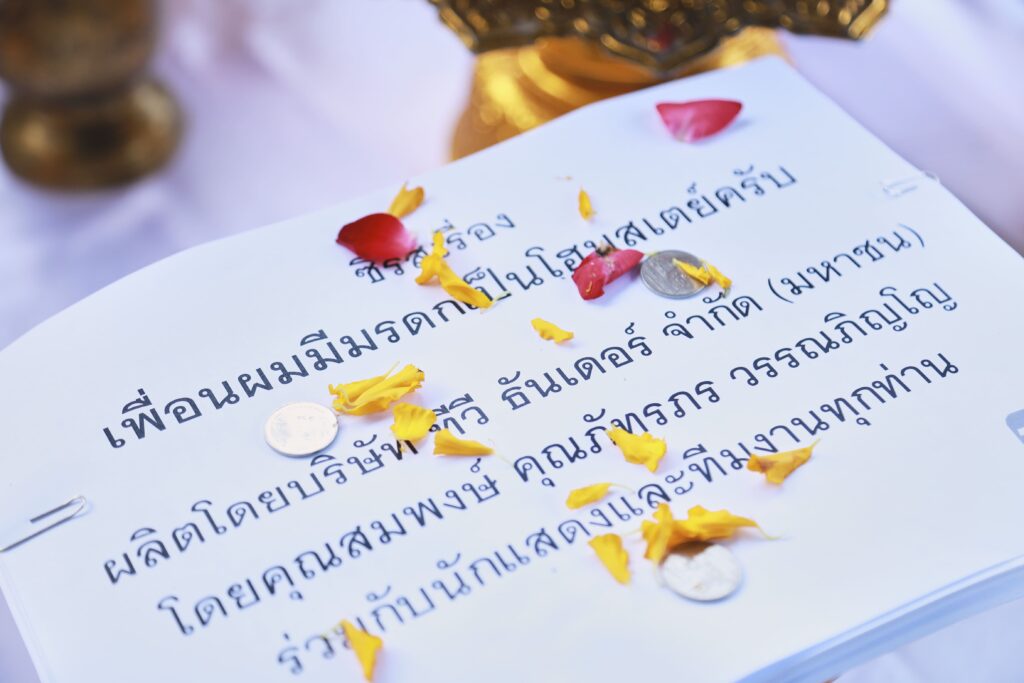 เพื่อนผมมีมรดกเป็นโฮมสเตย์ครับ
ผลิตโดยบริษัท ทีวี ธันเดอร์ จำกัด (มหาชน)
โดยคุณสมพงษ์ คุณภัทรภร วรรณภิญโญ
ร่วมกับนักแสดงและทีมงานทุกท่าน